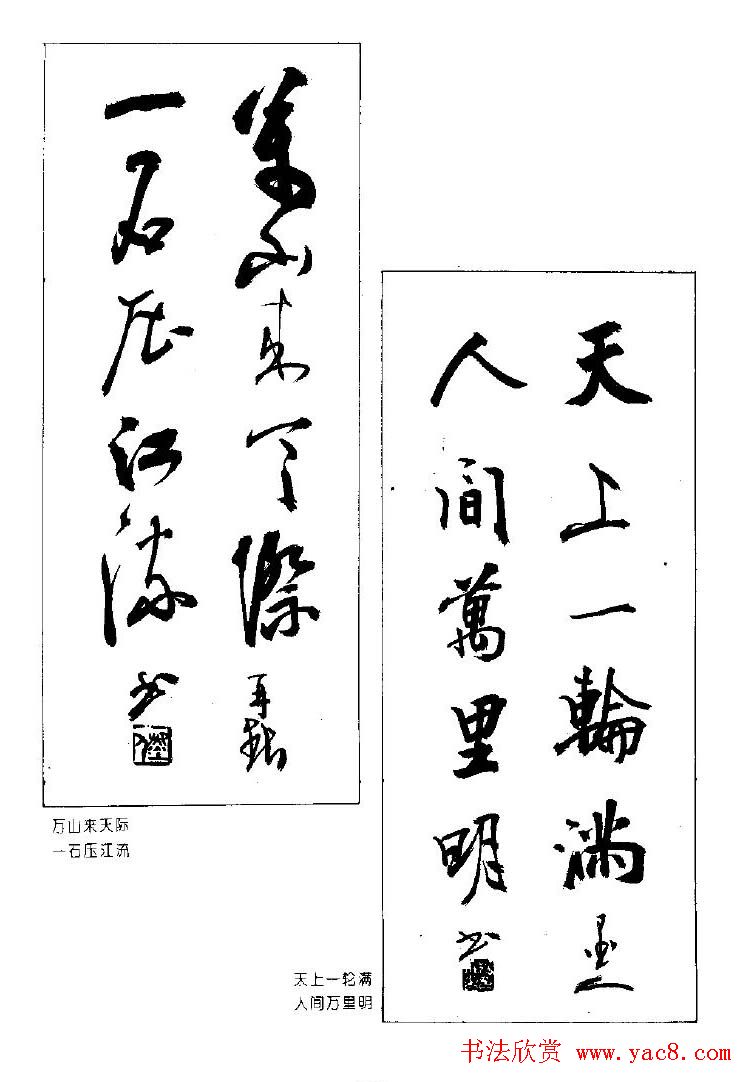 萬山来天際
一石压江流
书
万山来天际
一石压江流
天上一輪滿
人間萬里明
书
天上一轮满
人间万里明
书法欣赏 www.yac8.com